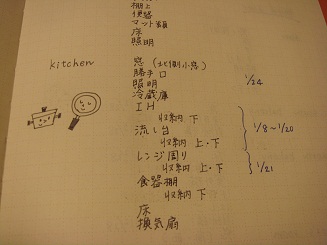 棚上
便器
マット類
床
照明
kitchen
窓（北側小窓）
勝手口
照明
1/24
冷蔵庫
IH
収納 下
流し台
1/8~1/20
収納 上・下
レンジ周り
1/21
収納 上・下
食器棚
収納 下
床
換気扇